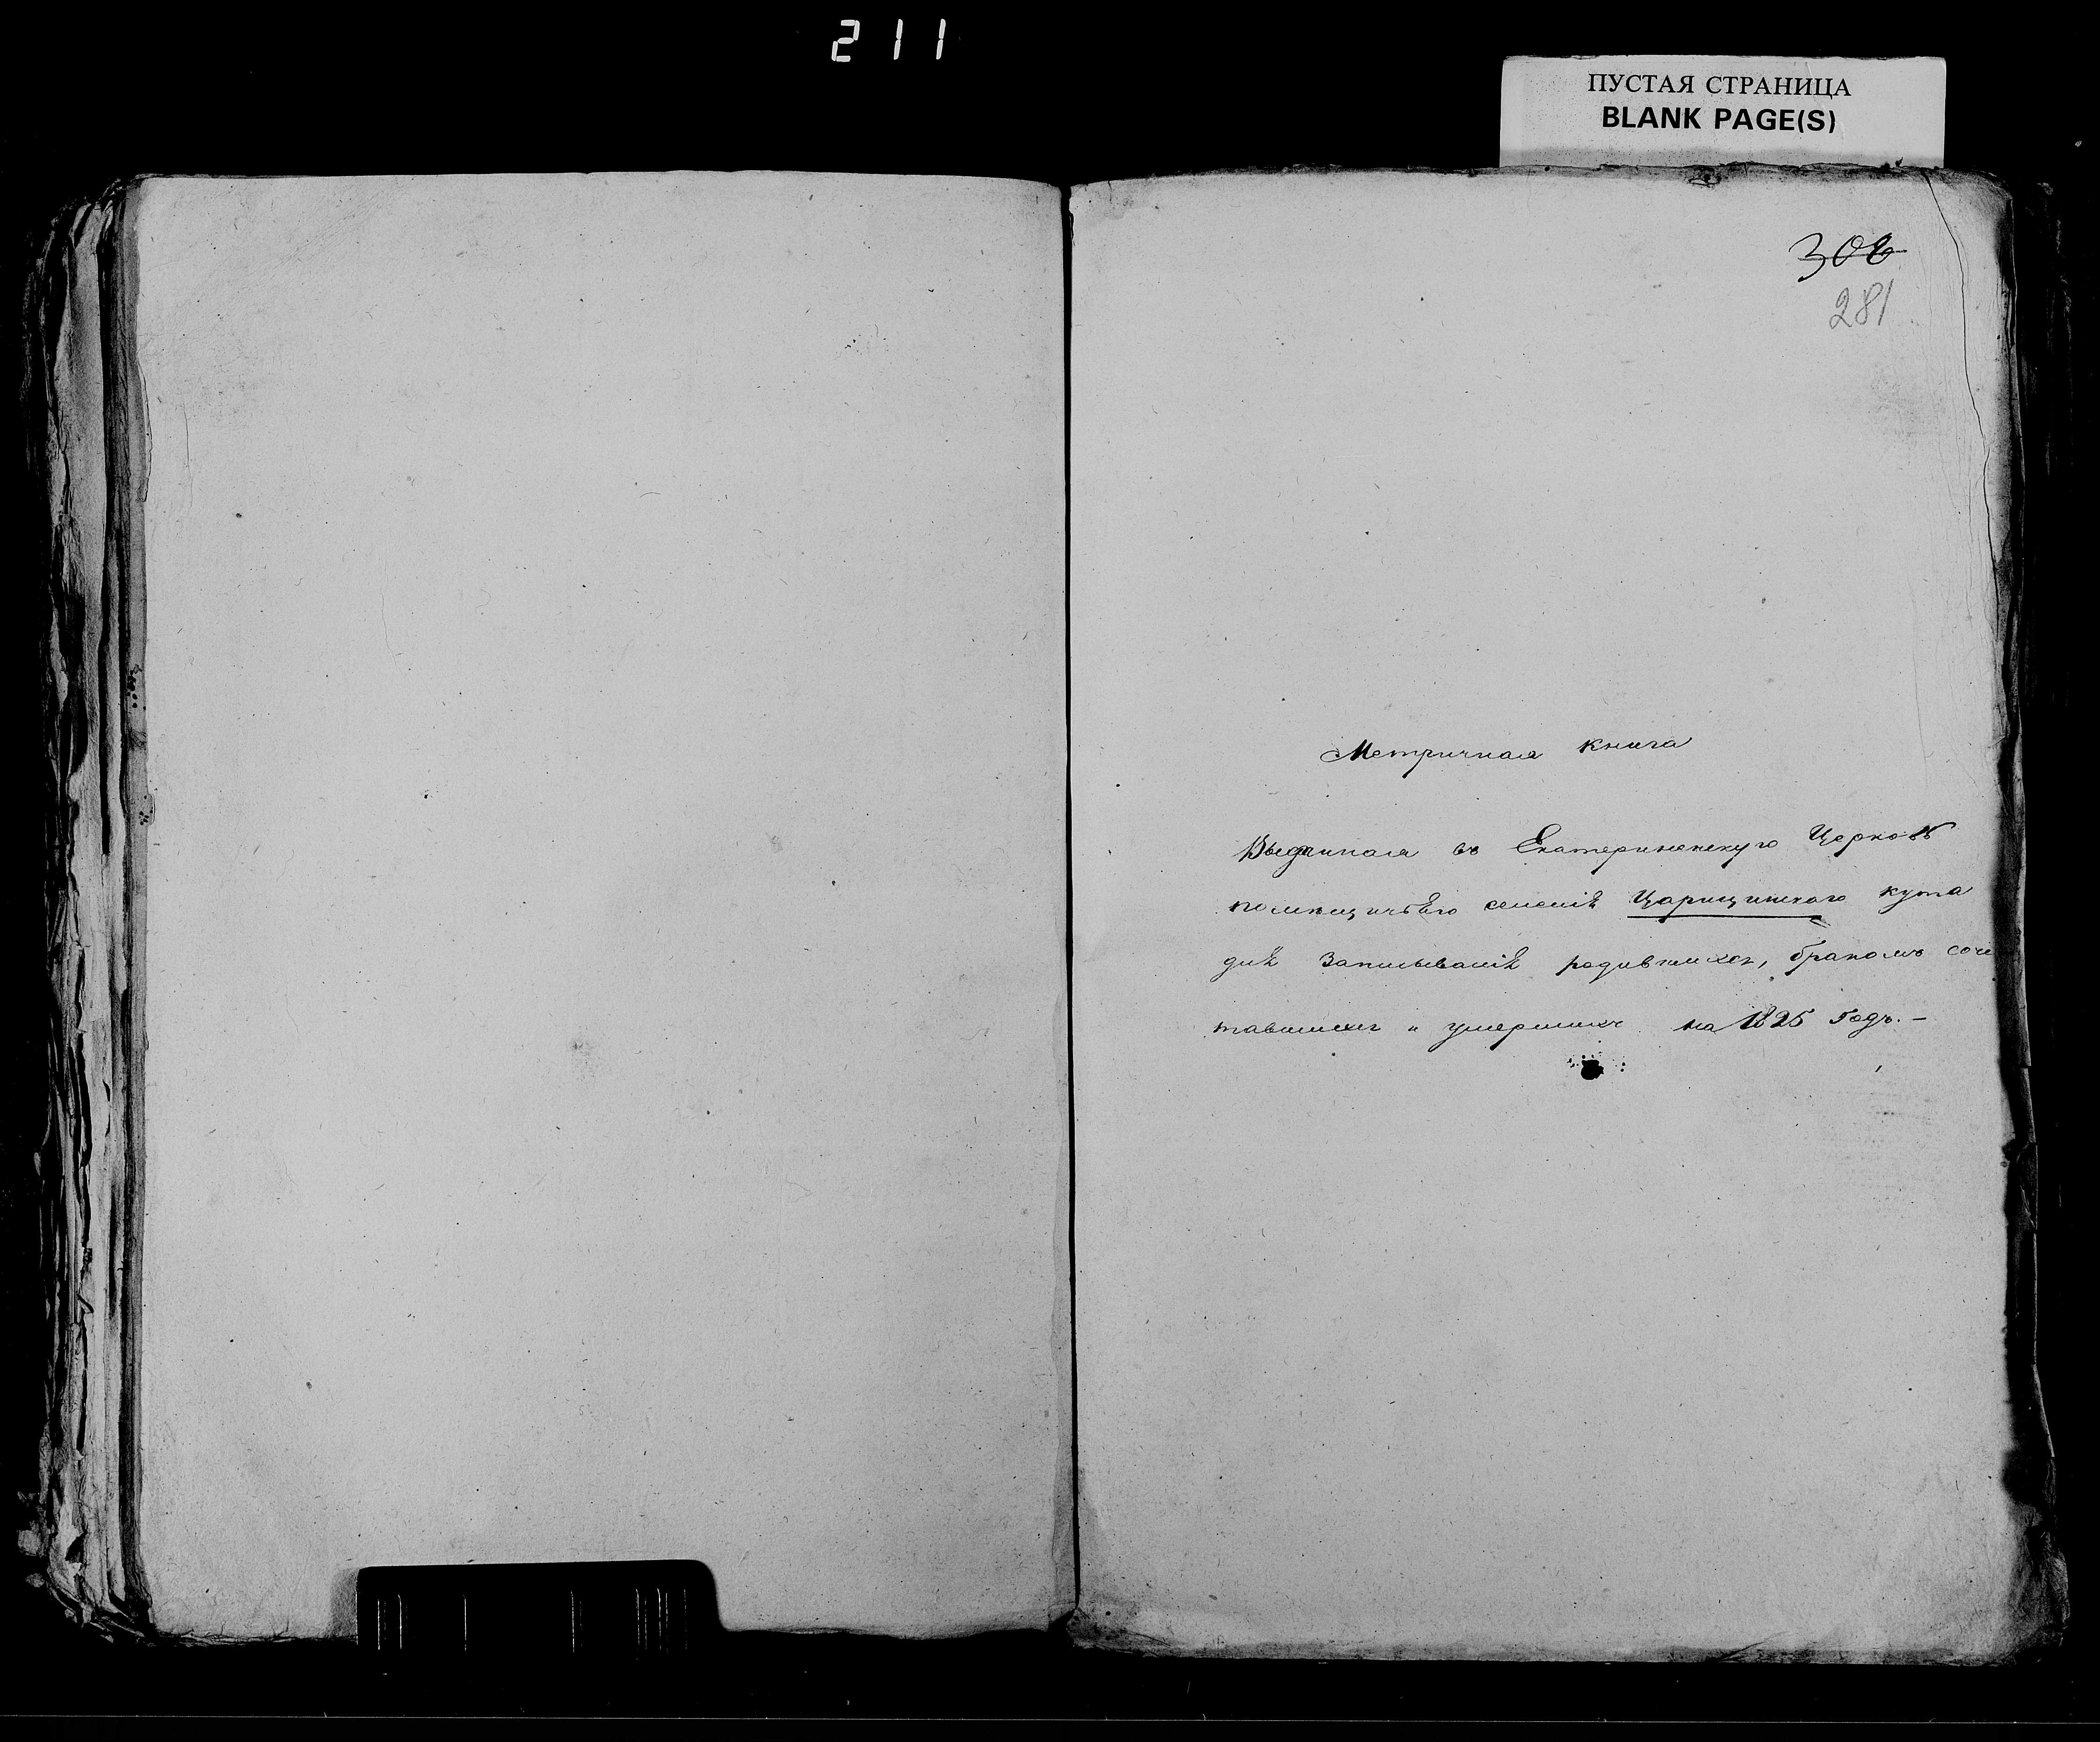 211
ПУСТАЯ СТРАНИЦА
BLANK PAGE(S)
281
Метричная книга
Выданная въ Екатерининскую Церковь
селенія Царицинского кута
для Записыванія родившихся, бракомъ соче
тавшихся и умершихъ на 1825 Годъ.-